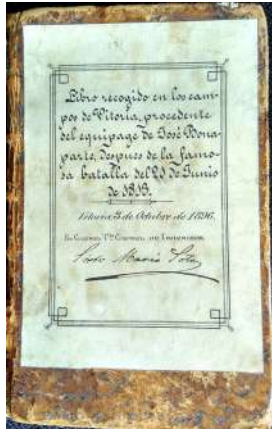 Libro recogido en los cam-
pos de Vitoria, procedente
del equipage de José Bona-
parte, despues de la famo-
sa batalla del 21 de Junio
de 1813.
Vitoria 3 de Octubre de 1896.